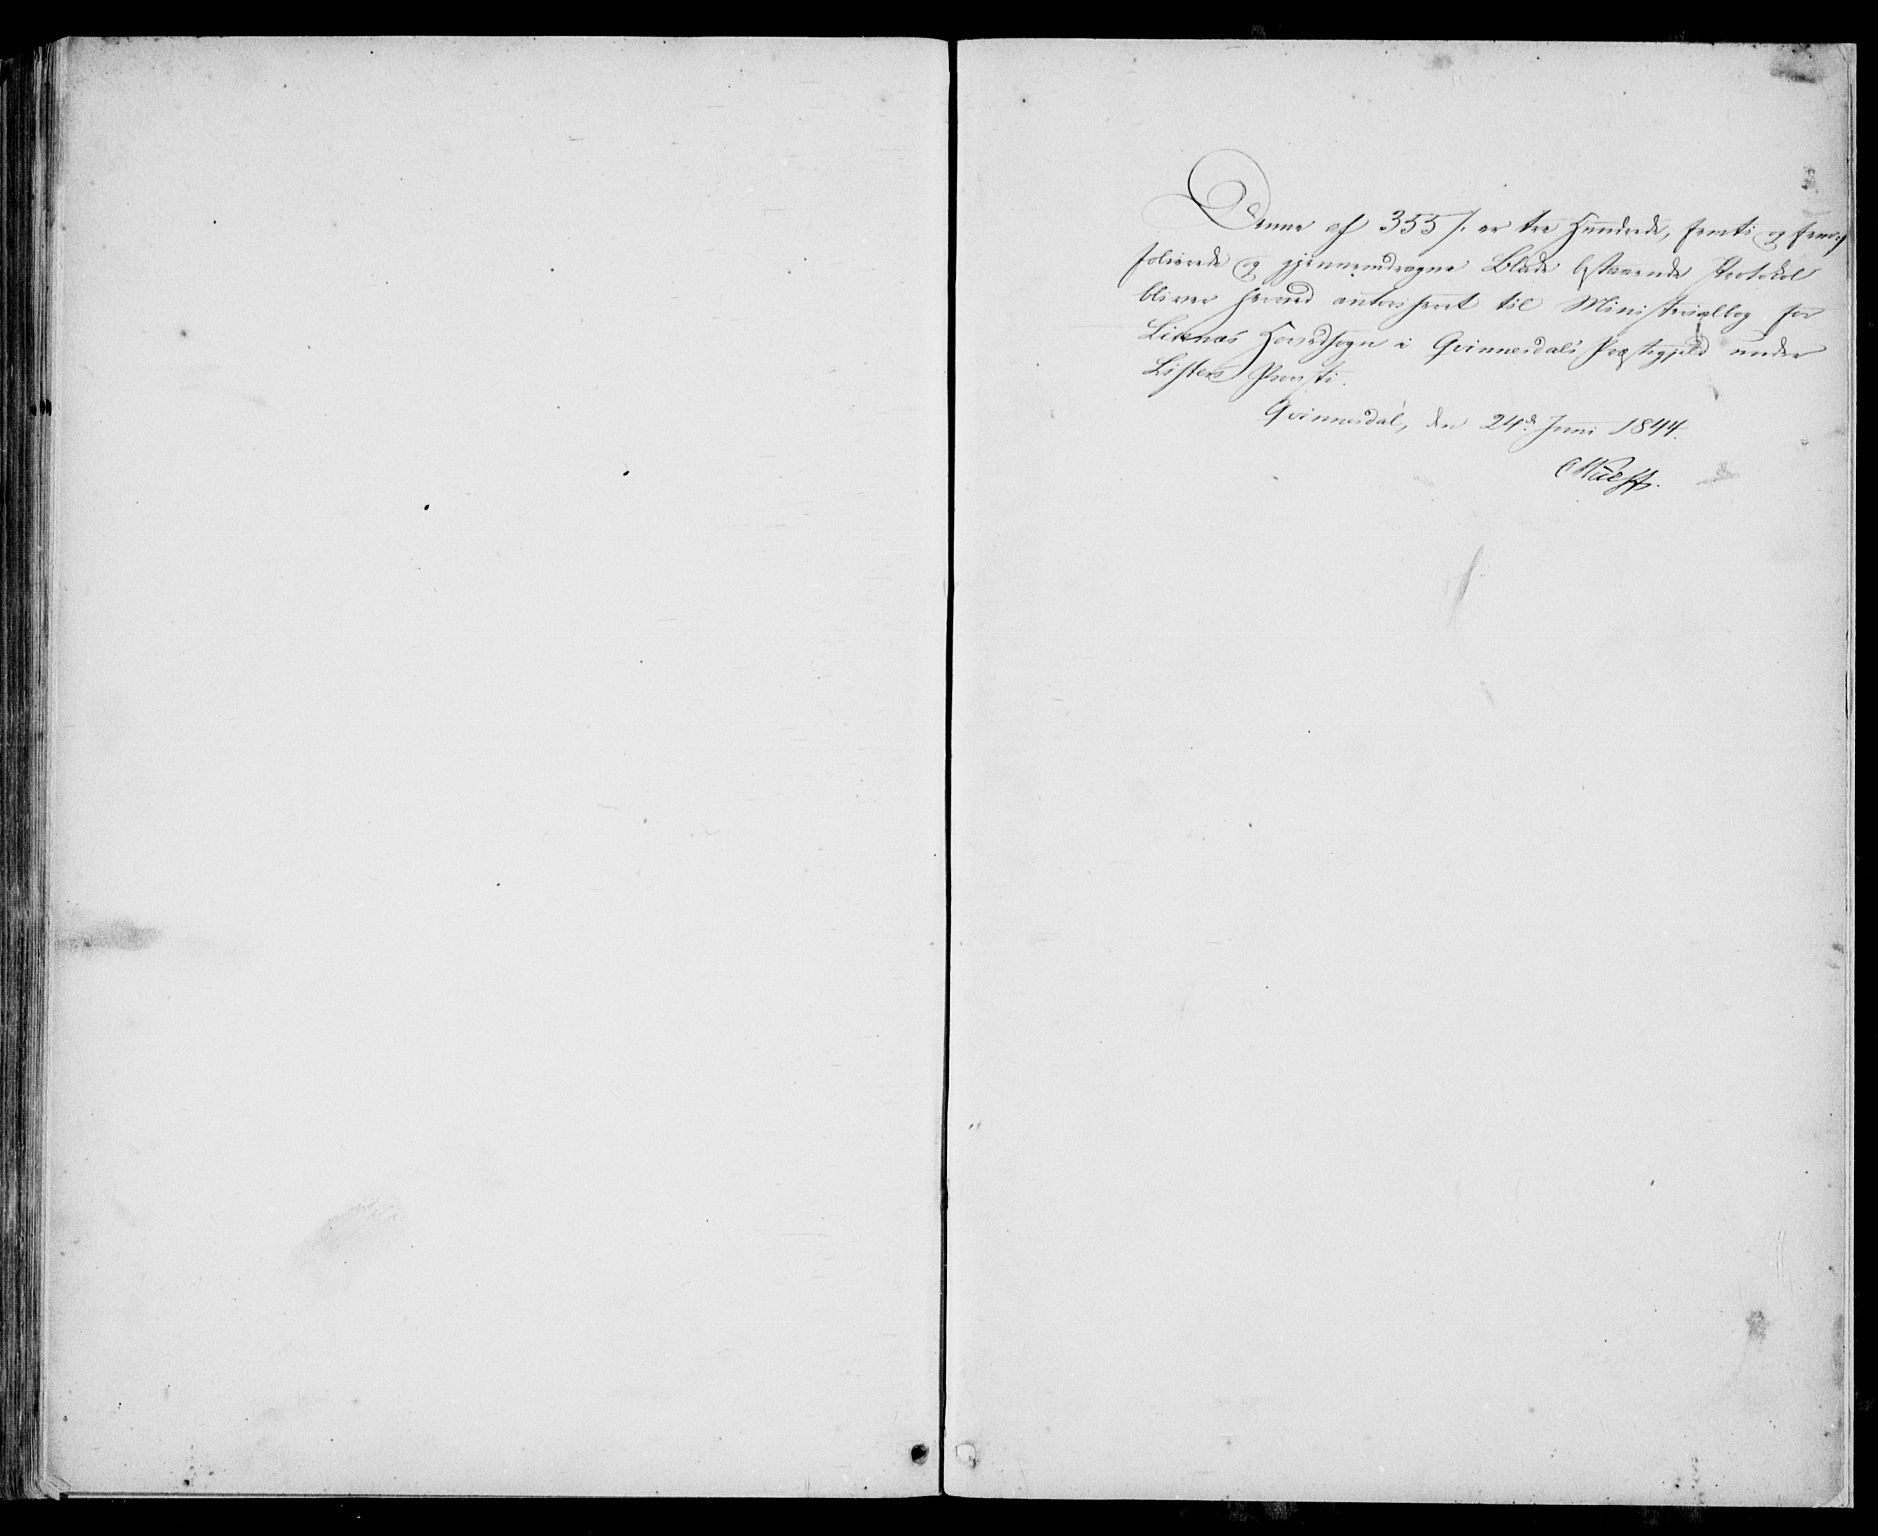 Denne af 355 /: er tre Hundrede, femti og fem :/
folierede og gjennemdragne Blade bestaaende Protokol
bliver herved autoriseret til Ministerialbog for
Liknæs Hovedsogn i Qvinnesdals Præstegjeld under
Listers Provsti.
Qvinnesdal, den 24de Juni 1844.